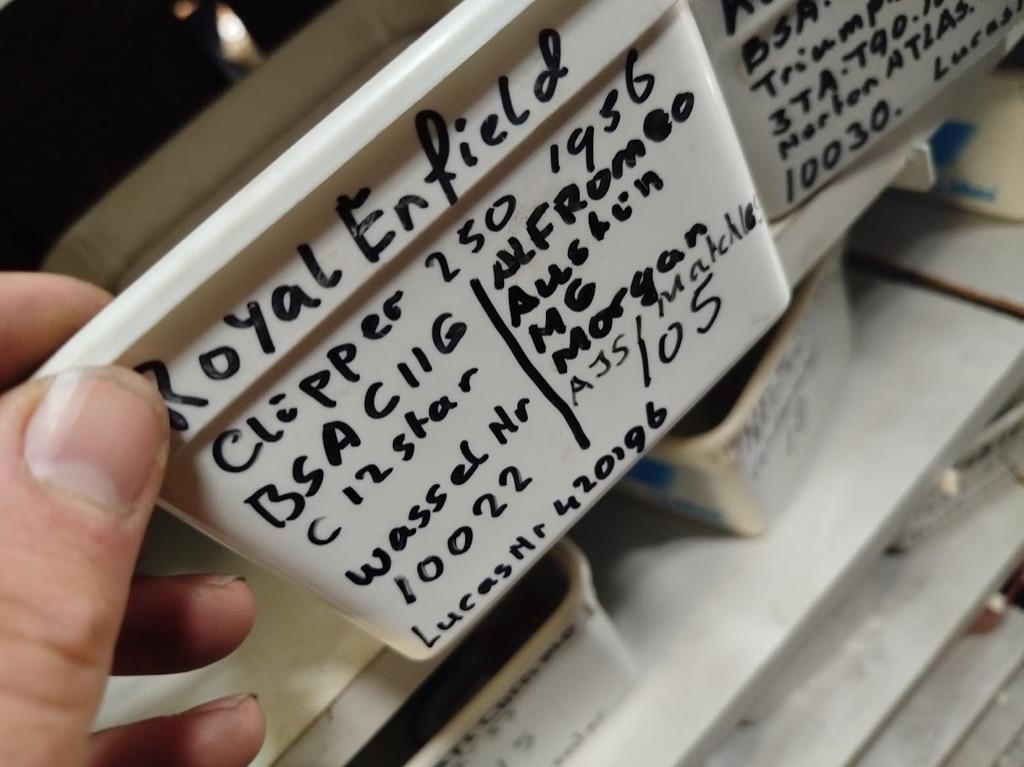 Royal Enfield
Clipper 250 1956
BSA C11G
C12 star
Wassel Nr
10022
Lucas Nr 420196
ALFROMEO
Austin
MG
Morgan
AJS/Matchles
105
BSA.
Triump
3TA.T90.
Norton ATLAS.
10030.
Lucas